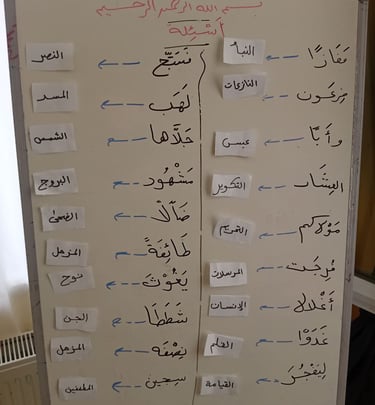 بسم الله الرحمن الرحيم
أسئلة
مَفَازًا النبأ
فِرعَون النازعات
وأَبًّا عبس
العِشَار التكوير
مَوْلاكم التحريم
فُرِجَت المرسلات
أَغْلَالا الإنسان
غَدَوْا القلم
لِيَفْجُرَ القيامة
فَسَبِّحْ النصر
لَهَب المسد
جَلَّاها الشمس
مَشْهُود البروج
ضَآلًا الضحى
طَائِفَةٌ المزمل
يَغُوثَ نوح
شَطَطًا الجن
نِصْفَه المزمل
سجين المطففين